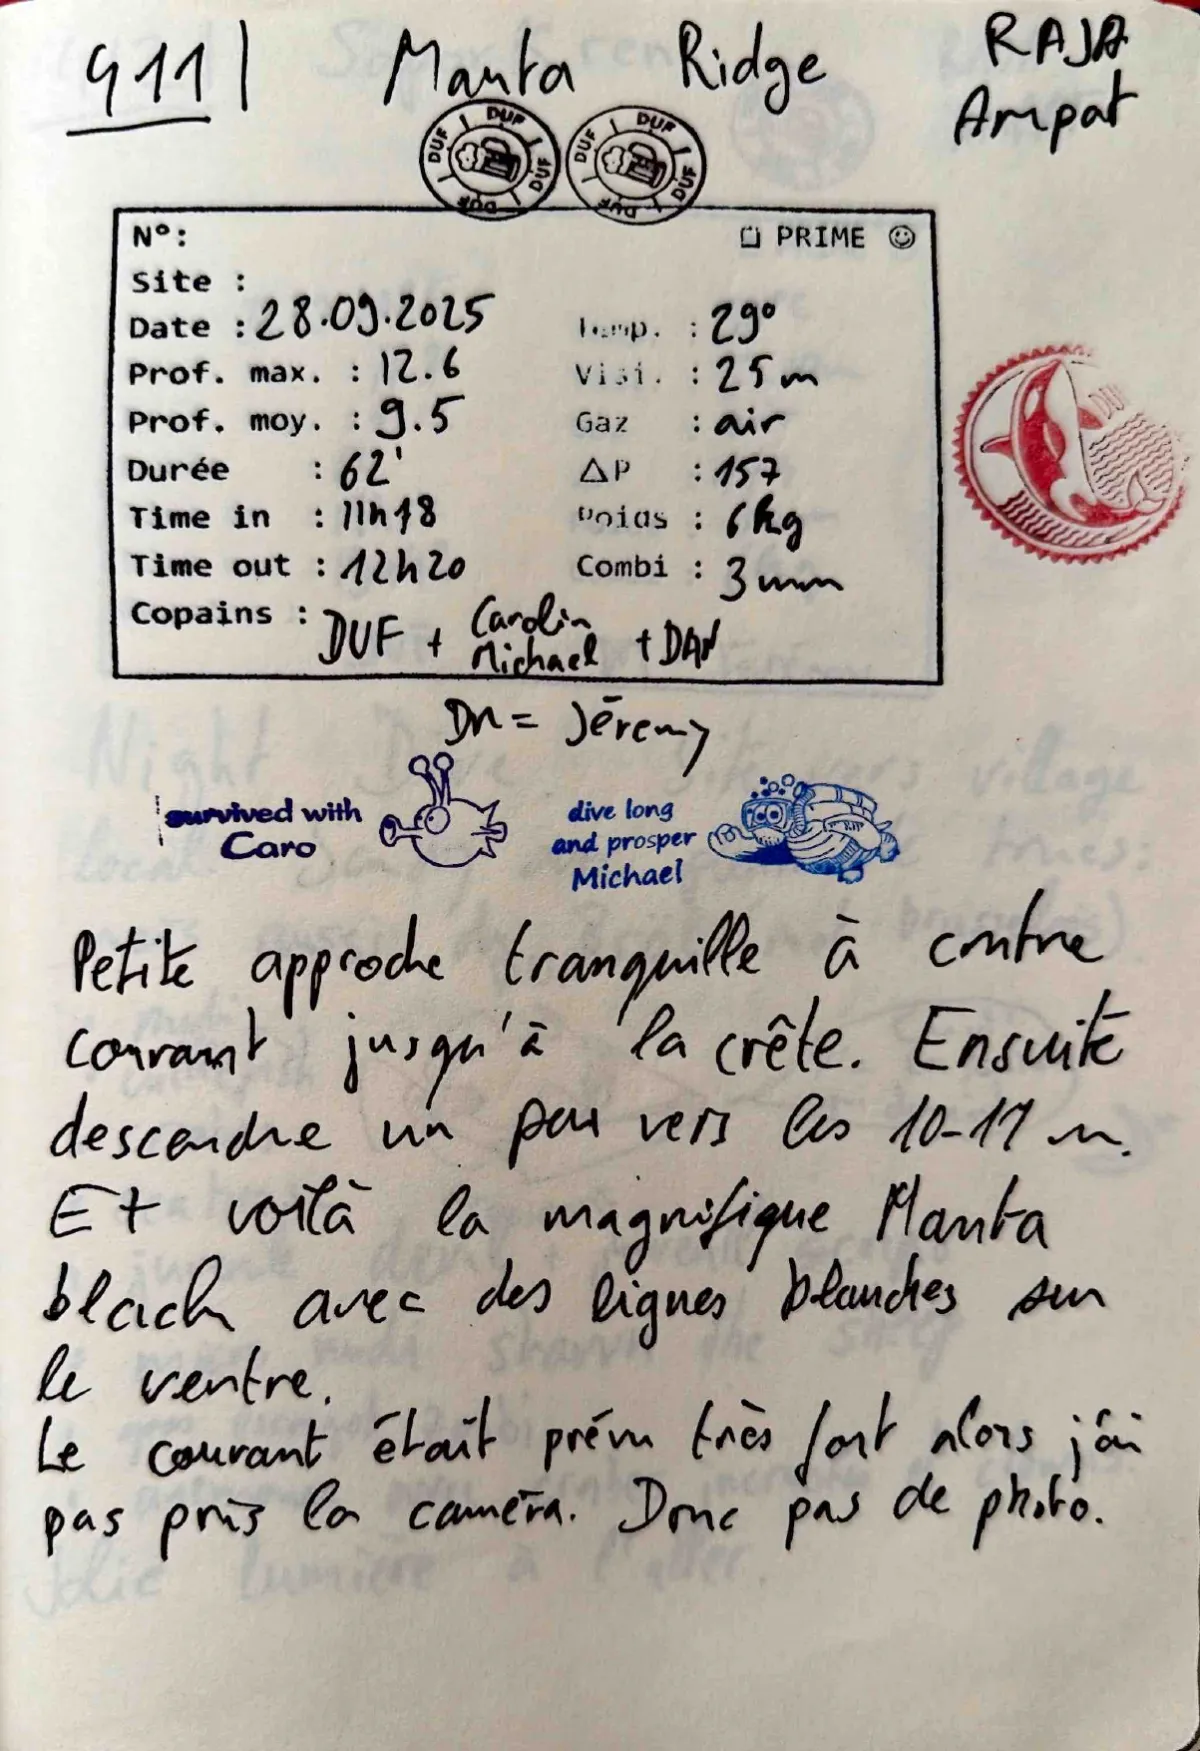 911 | Manta Ridge RAJA Ampat
DUF DUF DUF DUF
DUF DUF DUF DUF
N°: PRIME
Site :
Date : 28.09.2025 Temp. : 29°
Prof. max. : 12.6 Visi. : 25m
Prof. moy. : 9.5 Gaz : air
Durée : 62' ΔP : 157
Time in : 11h18 Poids : 6kg
Time out : 12h20 Combi : 3mm
Copains : DUF + Carolin Michael + DAN
DM = Jéremy
I survived with Caro
dive long and prosper Michael
Petite approche tranquille à contre
courant jusqu'à la crête. Ensuite
descendre un peu vers les 10-11 m.
Et voilà la magnifique Manta
black avec des lignes blanches sur
le ventre.
Le courant était prévu très fort alors j'ai
pas pris la caméra. Donc pas de photo.